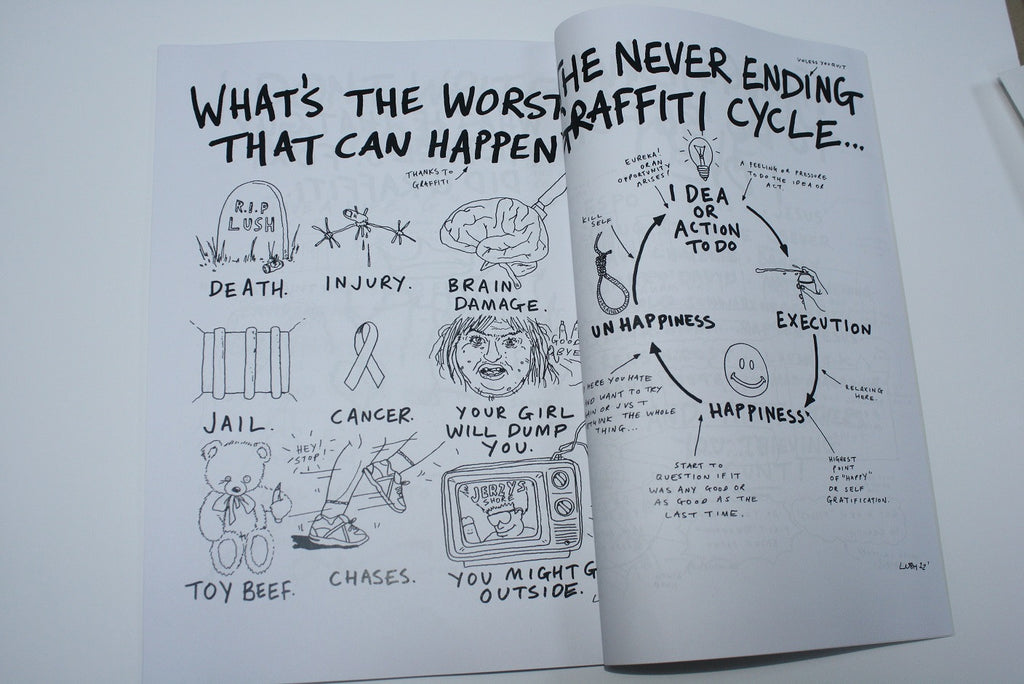 WHAT'S THE WORST
THAT CAN HAPPEN
THANKS TO
GRAFFITI
R.I.P
LUSH
DEATH.
INJURY.
BRAIN
DAMAGE.
JAIL.
CANCER.
GOOD
BYE
YOUR GIRL
WILL DUMP
YOU.
HEY!
STOP!
JERZYS
SHORE
TOY BEEF.
CHASES.
YOU MIGHT G
OUTSIDE.
UNLESS YOU QUIT
HE NEVER ENDING
GRAFFITI CYCLE...
EUREKA!
OR AN
OPPORTUNITY
ARISES!
A FEELING OR PRESSURE
TO DO THE IDEA OR
ACT
1 IDEA
OR
ACTION
TO DO
KILL
SELF
UNHAPPINESS
EXECUTION
RELAXING
HERE.
HAPPINESS
HERE YOU HATE
AND WANT TO TRY
OR JUST
THINK THE WHOLE
THING...
START TO
QUESTION IF IT
WAS ANY GOOD OR
AS GOOD AS THE
LAST TIME.
HIGHEST
POINT
OF "HAPPY"
OR SELF
GRATIFICATION.
LUSH